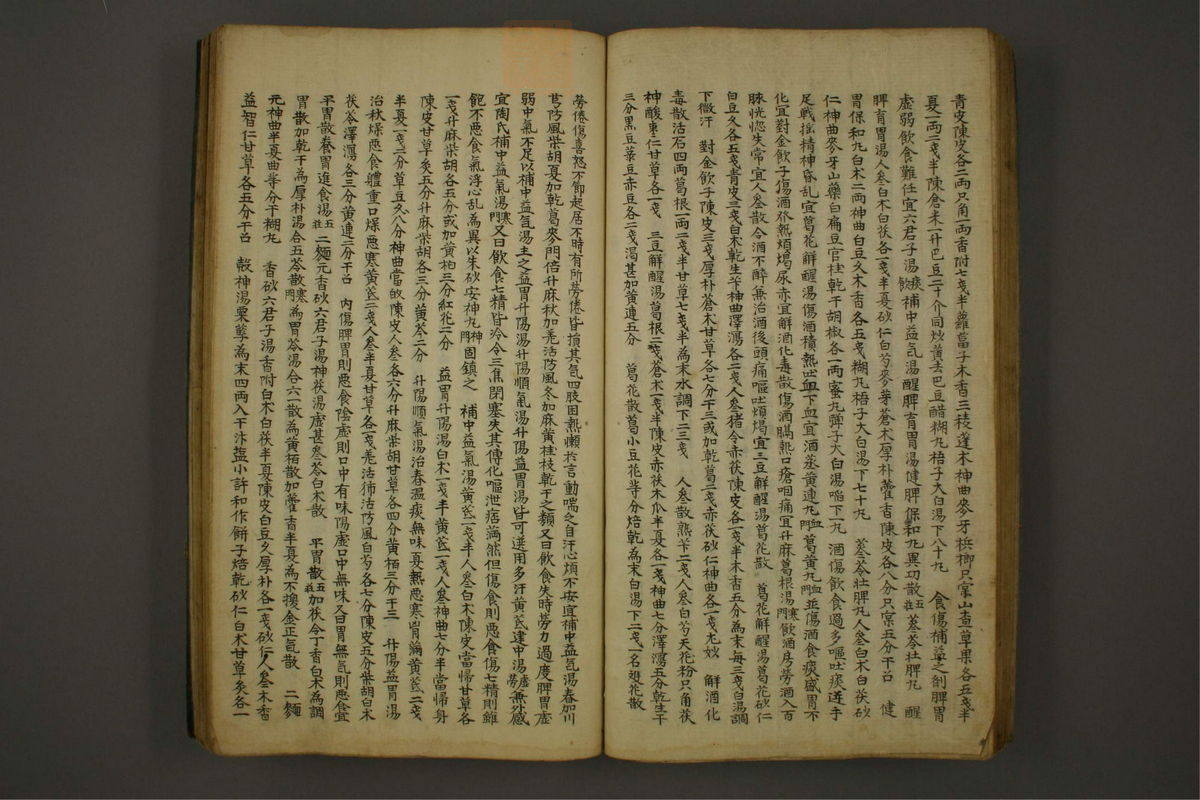 青皮陳皮各二兩只角一兩香附七戔半蘿葍子木香三棱蓬朮神曲麥牙梹榔只宲山査草果各五戔半
夏一兩二戔半陳倉米一升巴豆二十介同炒黃去巴豆醋糊丸梧子大白湯下八十丸 食傷補益之劑脾胃
虛弱飮食難任宜六君子湯痰飮補中益气湯醒脾育胃湯健脾保和丸異功散五莊蔘苓壯脾丸 醒
脾育胃湯人參白朮白茯各一戔半夏砂仁白芍麥芽蒼朮厚朴藿香陳皮各八分只宲五分干召 健
胃保和丸白朮二兩神曲白豆久木香各五戔糊丸梧子大白湯下七十丸 蔘苓壯脾丸人參白朮白茯砂
仁神曲麥牙山藥白扁豆官桂乾干胡椒各一兩蜜丸彈子大白湯嚥下一丸 酒傷飮食過多嘔吐痰逆手
足戰搖精神昏乱宜葛花解醒湯傷酒積熱吐血下血宜酒蒸黃連丸血門葛黃丸血門並傷酒食痰盛胃不
化宜對金飮子傷酒發熱煩渴尿赤宜解酒化毒散傷酒膈熱口瘡咽痛宜升麻葛根湯寒門飮酒房勞酒入百
脉恍惚失常宜人參散令酒不醉無治酒後頭痛嘔吐煩渴宜三豆解醒湯葛花散 葛花解醒湯葛花砂仁
白豆久各五戔靑皮三戔白朮乾生干神曲澤瀉各二戔人參猪令赤茯陳皮各一戔半木香五分爲末每三戔白湯調
下微汗 對金飮子陳皮三戔厚朴蒼朮甘草各七分干三或加乾葛二戔赤茯砂仁神曲各一戔尤妙 解酒化
毒散活石四兩葛根一兩二戔半甘草七戔半爲末水調下二三戔 人參散熟芐二戔人參白芍天花粉只角茯
神酸棗仁甘草各一戔 三豆解醒湯葛根二戔蒼朮一戔半陳皮赤茯木瓜半夏各一戔神曲七分澤瀉五分乾生干
三分黑豆菉豆赤豆各二戔渴甚加黃連五分 葛花散葛小豆花等分焙乾爲末白湯下二戔一名雙花散
勞倦傷喜怒不節起居不時有所勞倦皆損其气四肢困熱懶於言動喘乏自汗心煩不安宜補中益气湯春加川
芎防風柴胡夏加乾葛麥門倍升麻秋加羌活防風冬加麻黃桂枝乾干之類又曰飮食失時勞力過度脾胃虛
弱中氣不足以補中益气湯主之益胃升陽湯升陽順氣湯升陽益胃湯皆可選用多汗黃芪建中湯虛勞無外感
宜陶氏補中益氣湯寒門又曰飮食七精皆令三焦閉塞失其傳化嘔泄痞滿然但傷食則惡食傷七精則雖
飽不惡食氣浮心乱爲異以朱砂安神丸神門固鎭之 補中益氣湯黃芪一戔半人參白朮陳皮當歸甘草各
一戔升麻柴胡各五分或加黃柏三分紅花二分 益胃升陽湯白朮一戔半黃芪一戔人參神曲七分半當歸身
陳皮甘草炙五分升麻柴胡各三分黃芩二分 升陽順氣湯治春溫痰無味夏熱惡寒胃滿黃芪二戔
半夏一戔二分草豆久八分神曲當故陳皮人參各六分升麻柴胡甘草各四分黃栢三分干三 升陽益胃湯
治秋燥惡食軆重口燥惡寒黃芪二戔人參半夏甘草各一戔羌活獨活防風白芍各七分陳皮五分柴胡白朮
茯苓澤瀉各三分黃連二分干召 內傷脾胃則惡食陰虛則口中有味陽虛口中無味又曰胃無气則惡食宜
平胃散養胃進食湯五莊二麵元香砂六君子湯神茯湯虛甚參苓白朮散 平胃散五莊加茯令丁香白朮爲調
胃散加乾干爲厚朴湯合五苓散寒門爲胃苓湯合六一散爲黃栢散加藿香半夏爲不換金正气散 二麵
元神曲半夏曲等分干糊丸 香砂六君子湯香附白朮白茯半夏陳皮白豆久厚朴各一戔砂仁人參木香
益智仁甘草各五分干召 穀神湯粟孽爲末四兩入干汁塩小許和作餠子焙乾砂仁白朮甘草炙各一